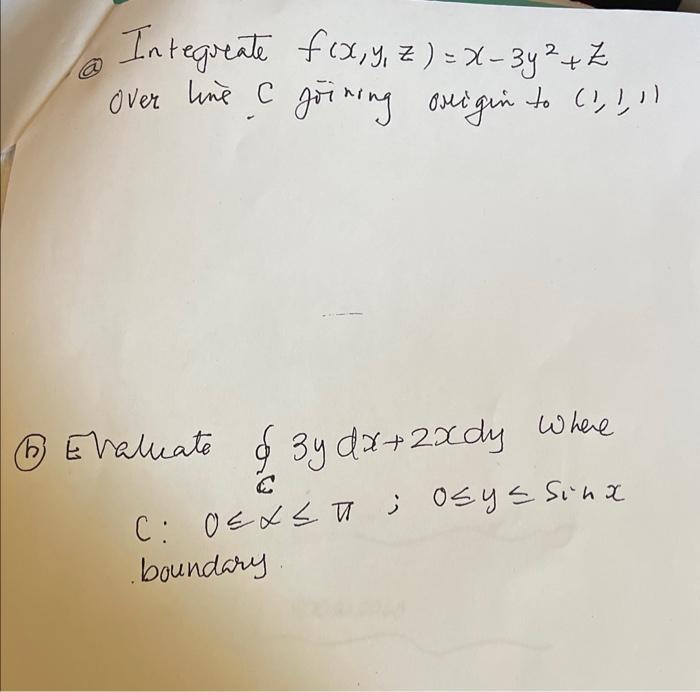 ⓐ Integrate f(x, y, z) = x - 3y² + z
over line C joining origin to (1, 1, 1)
ⓑ Evaluate ∮_C 3y dx + 2x dy where
C: 0 ≤ x ≤ π ; 0 ≤ y ≤ Sin x
boundary.